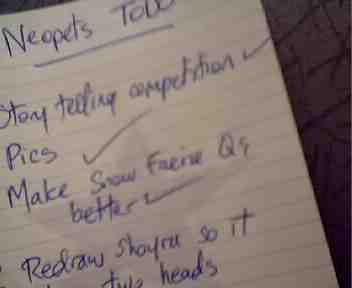 Neopets ToDo
Story telling competition
Pics
Make Snow Faerie Qs
better
Redraw Shoyru so it
two heads